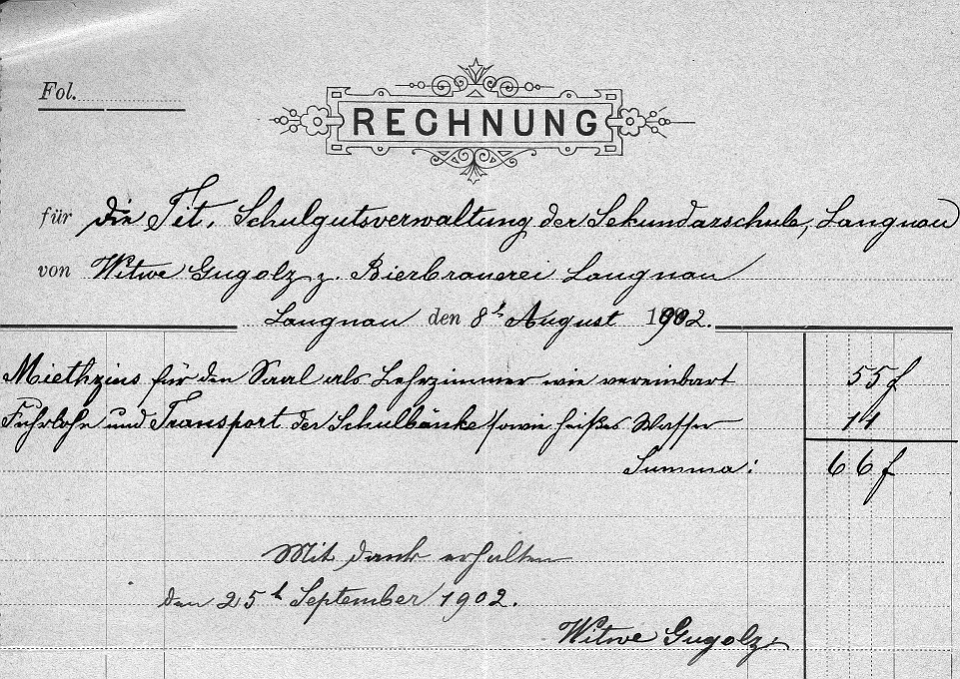 Fol.
RECHNUNG
für die Tit. Schulgutsverwaltung der Sekundarschule, Langnau
von Witwe Gugolz z. Bierbrauerei Langnau
Langnau den 8t August 1902.
Miethzins für den Saal als Lehrzimmer wie vereinbart 55 f
Fuhrlohn und Transport der Schulbänke sowie heißes Wasser 14
Summa: 66 f
Mit dank erhalten
den 25t September 1902.
Witwe Gugolz